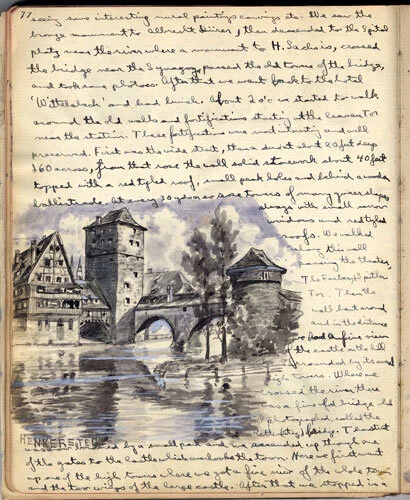 77
seeing some interesting mural paintings carvings etc. We saw the
bronze monument to Albrecht Dürer, then descended to the Spital
platz near the river where a monument to H. Sachs is, crossed
the bridge near the Synagogue, passed the old towers of the bridge,
and took some photos. After that we went back to the hotel
'Wittelsbach' and had lunch. About 2 o'c we started to walk
around the old walls and fortifications starting at the Frauen Tor
near the station. These fortifications are most interesting and well
preserved. First was the wide street, then a sunset about 20 feet deep
& 60 across, from that rose the wall solid stonework about 40 feet
topped with a red tyled roof, small peak holes and behind a wooden
At every 50 yds or so rose towers of many
with small narrow
windows and red tyled
roofs. We walked
along this wall
passing the theatre,
The Färber, Spittler
Tor. Then the
wall bent around
and in the distance
we had a fine view
of the castle on the hill
surrounded by its
high towers. Where we
crossed the river there
was a fine old bridge which
I photographed, called the
bridge. The street
HENKERSTEG
by a small park and we ascended up through one
of the gates to the Castle which overlooks the town. Here we first went
up one of the high towers where we got a fine view of the whole town
and the two wings of the large castle. After that we stepped in a